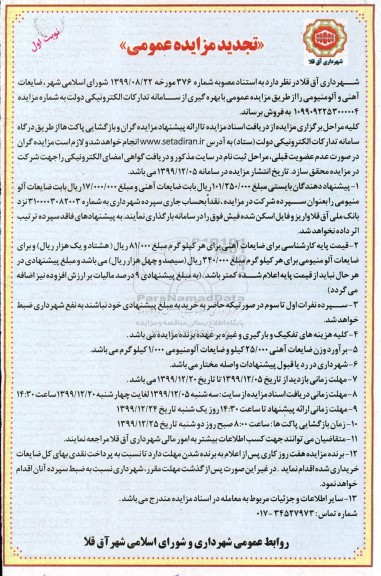 شهرداری آق قلا
«تجدید مزایده عمومی»
نوبت اول
شـهرداری آق قلا در نظر دارد به استناد مصوبه شماره ۳۷۶ مورخه ۱۳۹۹/۰۸/۲۲ شورای اسلامی شهر، ضایعات
آهنی و آلومنیومی را از طریق مزایده عمومی با بهره گیری از سامانه تدارکات الکترونیکی دولت به شماره مزایده
۱۰۹۹۰۹۲۲۵۳۰۰۰۰۰۴ به فروش برساند.
کلیه مراحل برگزاری مزایده از دریافت اسناد مزایده تا ارائه پیشنهاد مزایده گران و بازگشایی پاکت ها از طریق درگاه
سامانه تدارکات الکترونیکی دولت (ستاد) به آدرس www.setadiran.ir انجام خواهد شد و لازم است مزایده گران
در صورت عدم عضویت قبلی، مراحل ثبت نام در سایت مذکور و دریافت گواهی امضای الکترونیکی را جهت شرکت
در مزایده محقق سازند. تاریخ انتشار مزایده در سامانه ۱۳۹۹/۱۲/۰۵ می باشد.
۱- پیشنهاد دهندگان بایستی مبلغ ۱۰۱/۲۵۰/۰۰۰ ریال بابت ضایعات آهنی و مبلغ ۱۷/۰۰۰/۰۰۰ ریال بابت ضایعات آلو
مینیومی را بعنوان سپرده شرکت در مزایده، نقداً بحساب جاری سپرده شهرداری به شماره ۳۱۰۰۰۰۳۰۸۲۰۰۳ نزد
بانک ملی آق قلا واریز و فایل اسکن شده فیش فوق را در سامانه بارگذاری نمایند. به پیشنهادهای فاقد سپرده ترتیب
اثر داده نخواهد شد.
۲- قیمت پایه کارشناسی برای ضایعات آهنی برای هر کیلو گرم مبلغ ۸۱/۰۰۰ ریال (هشتاد و یک هزار ریال) و برای
ضایعات آلو منیومی برای هر کیلو گرم مبلغ ۳۴۰/۰۰۰ ریال (سیصد و چهل هزار ریال) می باشد و مبلغ پیشنهادی در
هر حال نباید از قیمت پایه اعلام شده کمتر باشد. (به مبلغ پیشنهادی ۹ درصد مالیات بر ارزش افزوده نیز اضافه
می گردد)
۳- سـپرده نفرات اول تا سوم در صورتیکه حاضر به خرید به مبلغ پیشنهادی خود نباشند به نفع شهرداری ضبط
خواهد شد.
۴- کلیه هزینه های تفکیک و بارگیری و غیره بر عهده برنده مزایده می باشد.
۵- برآورد وزن ضایعات آهنی ۲۵/۰۰۰ کیلو و ضایعات آلومنیومی ۱/۰۰۰ کیلو گرم می باشد.
۶- شهرداری در رد یا قبول پیشنهادات واصله مختار می باشد.
۷- مهلت زمانی بازدید از تاریخ ۱۳۹۹/۱۲/۰۵ تا تاریخ ۱۳۹۹/۱۲/۲۰ می باشد.
۸- مهلت زمانی دریافت اسناد مزایده از سایت: سه شنبه ۱۳۹۹/۱۲/۰۵ لغایت چهارشنبه ۱۳۹۹/۱۲/۲۰ ساعت ۱۴:۳۰
۹- مهلت زمانی ارائه پیشنهاد تا ساعت: ۱۴:۳۰ روز یک شنبه تاریخ ۱۳۹۹/۱۲/۲۴
۱۰- زمان بازگشایی پاکت ها: ساعت: ۸:۰۰ صبح روز دو شنبه تاریخ ۱۳۹۹/۱۲/۲۵
۱۱- متقاضیان می توانند جهت کسب اطلاعات بیشتر به امور مالی شهرداری آق قلا مراجعه نمایند.
۱۲- برنده مزایده هفت روز کاری پس از اعلام به برنده شدن مهلت دارد تا نسبت به پرداخت نقدی بهای کل ضایعات
خریداری شده اقدام نماید. در غیر این صورت پس از گذشت مهلت مقرر، شهرداری نسبت به ضبط سپرده آنان اقدام
خواهد نمود.
۱۳- سایر اطلاعات و جزئیات مربوط به معامله در اسناد مزایده مندرج می باشد.
شماره تماس: ۳۴۵۲۷۹۷۳-۰۱۷
روابط عمومی شهرداری و شورای اسلامی شهر آق قلا